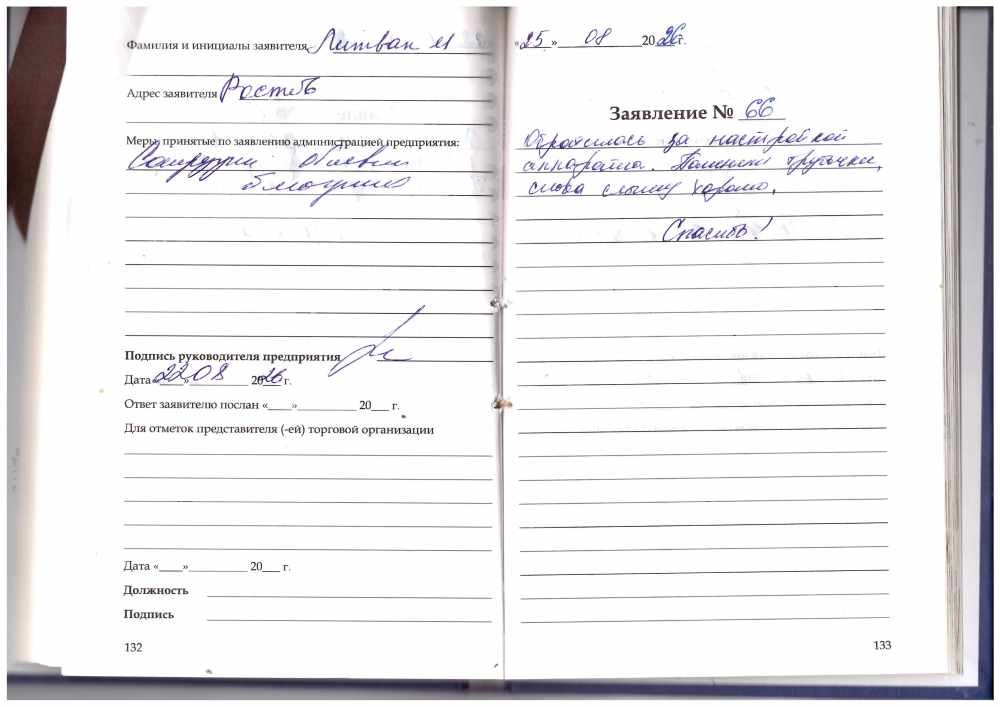 Фамилия и инициалы заявителя Литвак И
Адрес заявителя Ростов
Меры, принятые по заявлению администрацией предприятия:
Подпись руководителя предприятия
Дата «22» 08 2026 г.
Ответ заявителю послан «____»__________ 20___ г.
Для отметок представителя (-ей) торговой организации
Дата «____»__________ 20___ г.
Должность
Подпись
132
«25» 08 2026 г.
Заявление № 66
Обратилась за настройкой
аппарата. Поменяли трубочки,
снова слышу хорошо.
Спасибо!
133